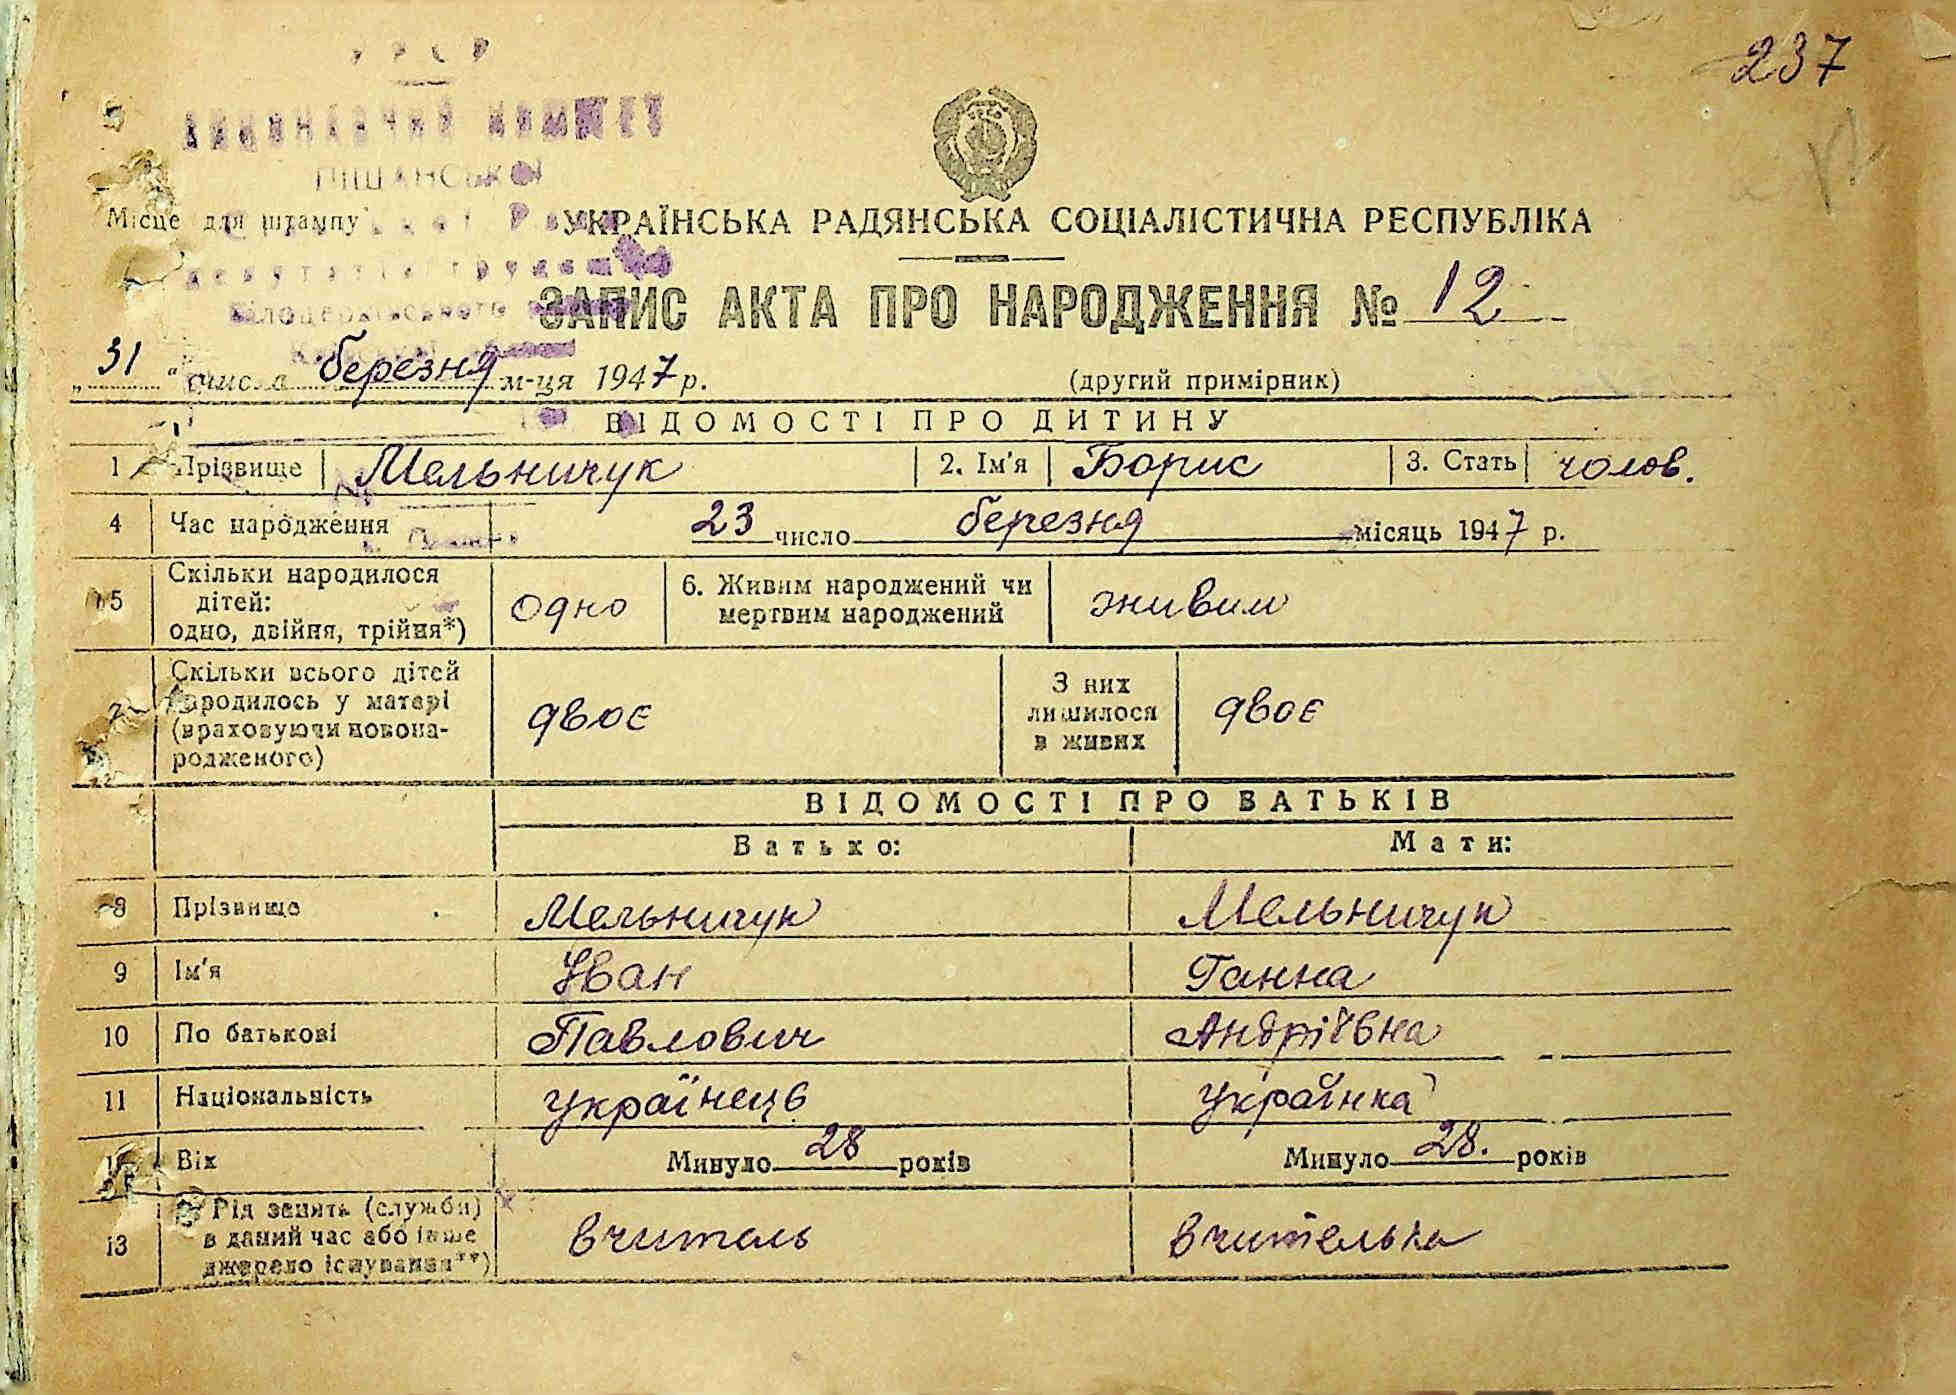 237
УРСР
ПІШАНСЬКОЇ
Місце для штампу
УКРАЇНСЬКА РАДЯНСЬКА СОЦІАЛІСТИЧНА РЕСПУБЛІКА
ЗАПИС АКТА ПРО НАРОДЖЕННЯ № 12
„31“ числа березня м-ця 1947 р. (другий примірник)
ВІДОМОСТІ ПРО ДИТИНУ
1 Прізвище Мельничук 2. Ім'я Борис 3. Стать чолов.
4 Час народження 23 число березня місяць 1947 р.
5 Скільки народилося дітей: одно, двійня, трійня*) одно 6. Живим народжений чи мертвим народжений живим
Скільки всього дітей народилось у матері (враховуючи новонародженого) двоє З них лишилося в живих двоє
ВІДОМОСТІ ПРО БАТЬКІВ
Батько: Мати:
8 Прізвище Мельничук Мельничук
9 Ім'я Іван Ганна
10 По батькові Павлович Андріївна
11 Національність українець українка
Вік Минуло 28 років Минуло 28. років
13 Рід занять (служби) в даний час або інше джерело існування**) вчитель вчителька